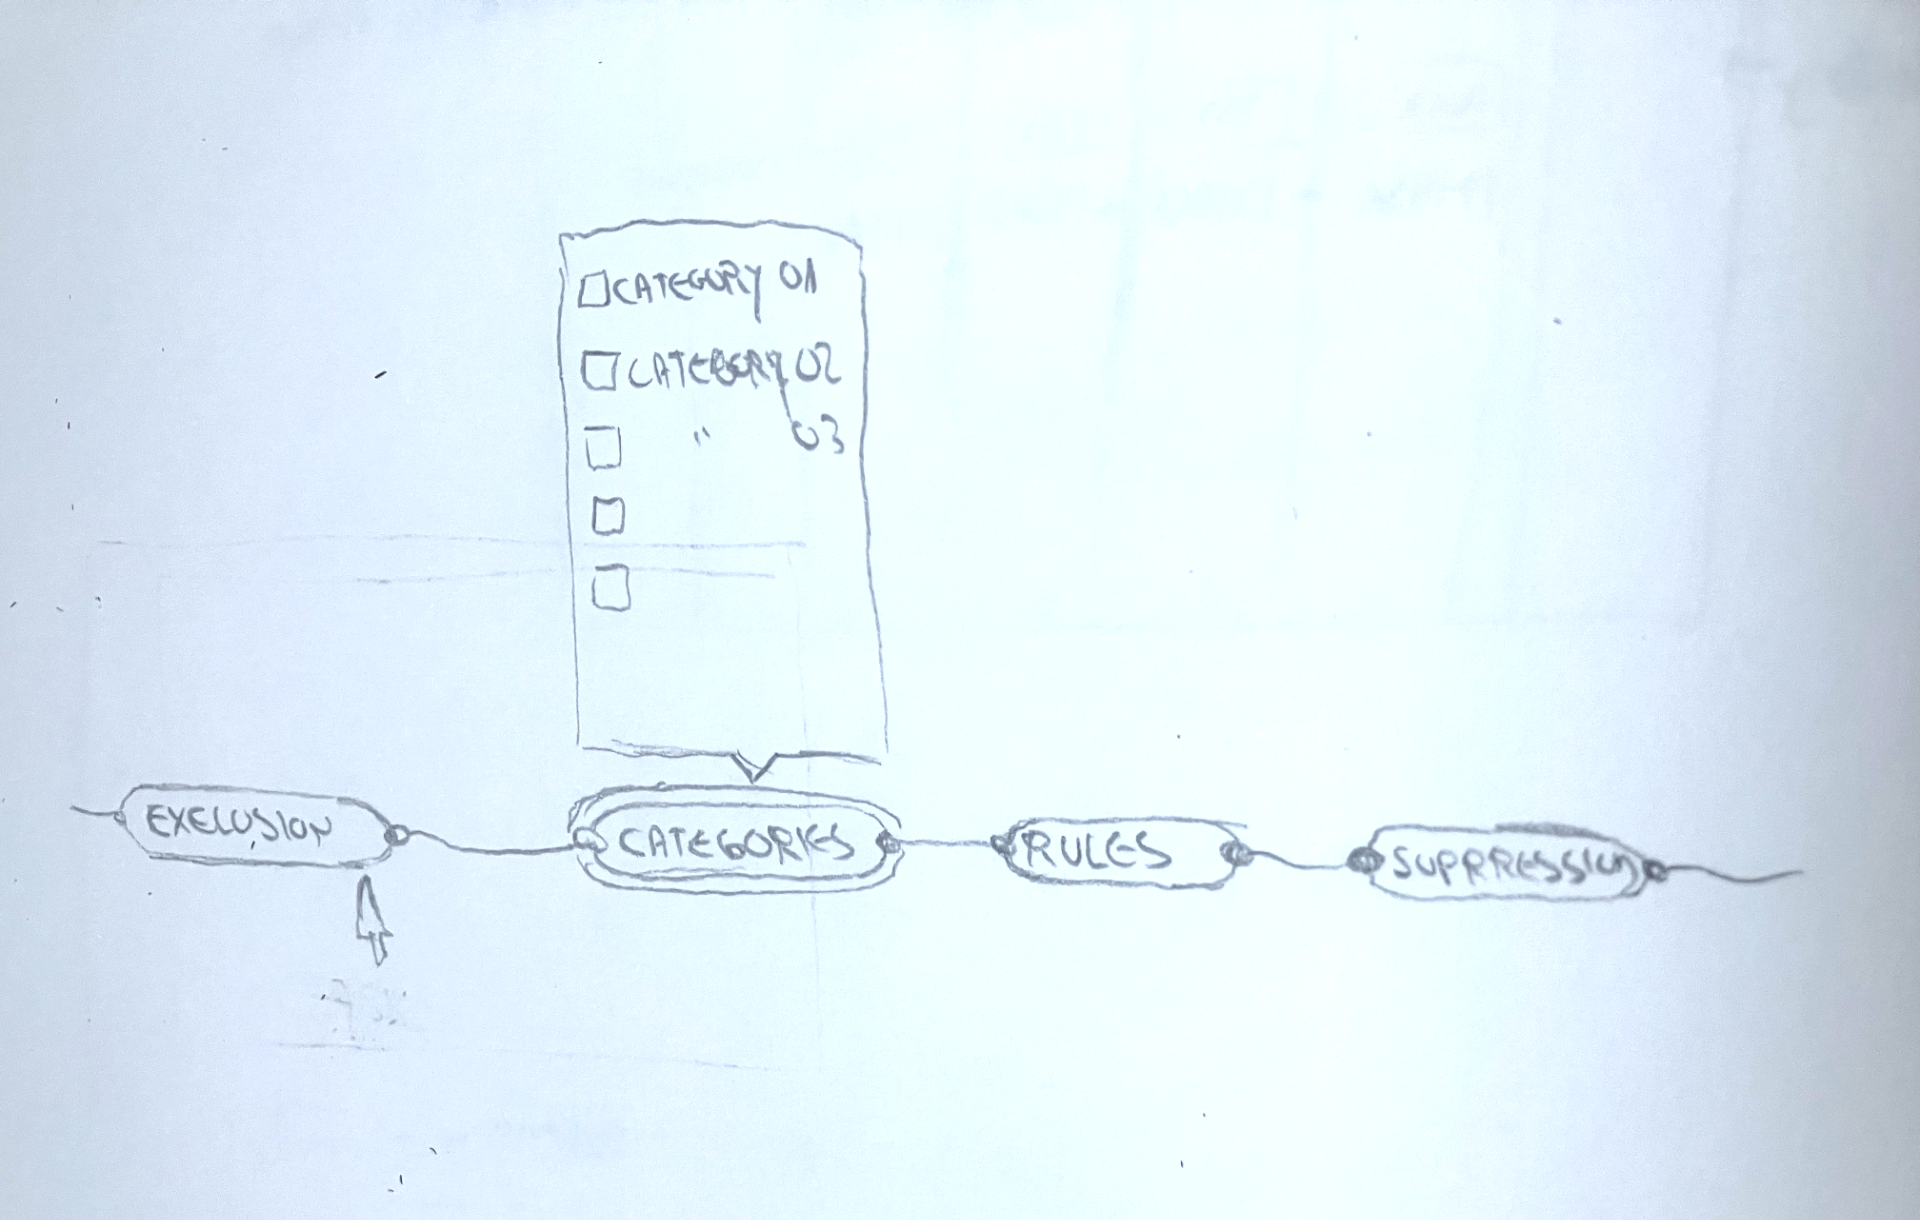 CATEGORY 01
CATEGORY 02
" 03
EXCLUSION
CATEGORIES
RULES
SUPRRESSION